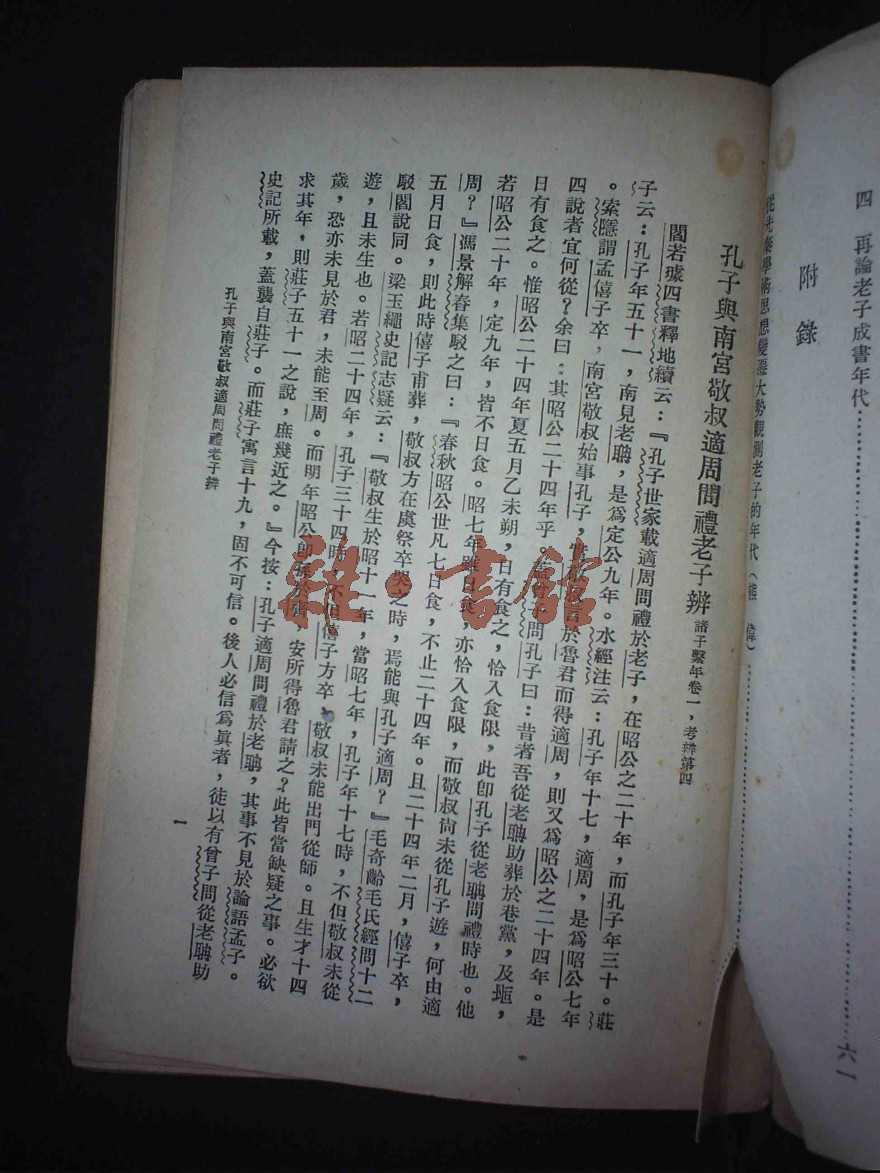 四　再論老子成書年代……………………六一
附錄
從先秦學術思想變遷大勢觀測老子的年代（熊　偉）……………………
孔子與南宮敬叔適周問禮老子辨 諸子繫年卷一，考辨第四
閻若璩四書釋地續云：『孔子世家載適周問禮於老子，在昭公之二十年，而孔子年三十。莊
子云：孔子年五十一，南見老聃，是爲定公九年。水經注云：孔子年十七，適周，是爲昭公七年
。索隱謂孟僖子卒，南宮敬叔始事孔子，言於魯君而得適周，則又爲昭公之二十四年。是
四說者宜何從？余曰：其昭公二十四年乎。問孔子曰：昔者吾從老聃助葬於巷黨，及堩，
日有食之。惟昭公二十四年夏五月乙未朔，日有食之，恰入食限，此卽孔子從老聃問禮時也。他
若昭公二十年，定九年，皆不日食。昭七年雖日食，亦恰入食限，而敬叔尙未從孔子遊，何由適
周？』馮景解舂集駁之曰：『春秋昭公世凡七日食，不止二十四年。且二十四年二月，僖子卒，
五月日食，則此時僖子甫葬，敬叔方在虞祭卒哭之時，焉能與孔子適周？』毛奇齡毛氏經問十二
駁閻說同。梁玉繩史記志疑云：『敬叔生於昭十一年，當昭七年，孔子年十七時，不但敬叔未從
遊，且未生也。若昭二十四年，孔子三十四時，不但僖子方卒，敬叔未能出門從師。且生才十四
歲，恐亦未見於君，未能至周。而明年昭公卽孫於齊，安所得魯君請之？此皆當缺疑之事。必欲
求其年，則莊子五十一之說，庶幾近之。』今按：孔子適周問禮於老聃，其事不見於論語孟子。
史記所載，蓋襲自莊子。而莊子寓言十九，固不可信。後人必信爲眞者，徒以有曾子問從老聃助
孔子與南宮敬叔適周問禮老子辨
一
雜·書館